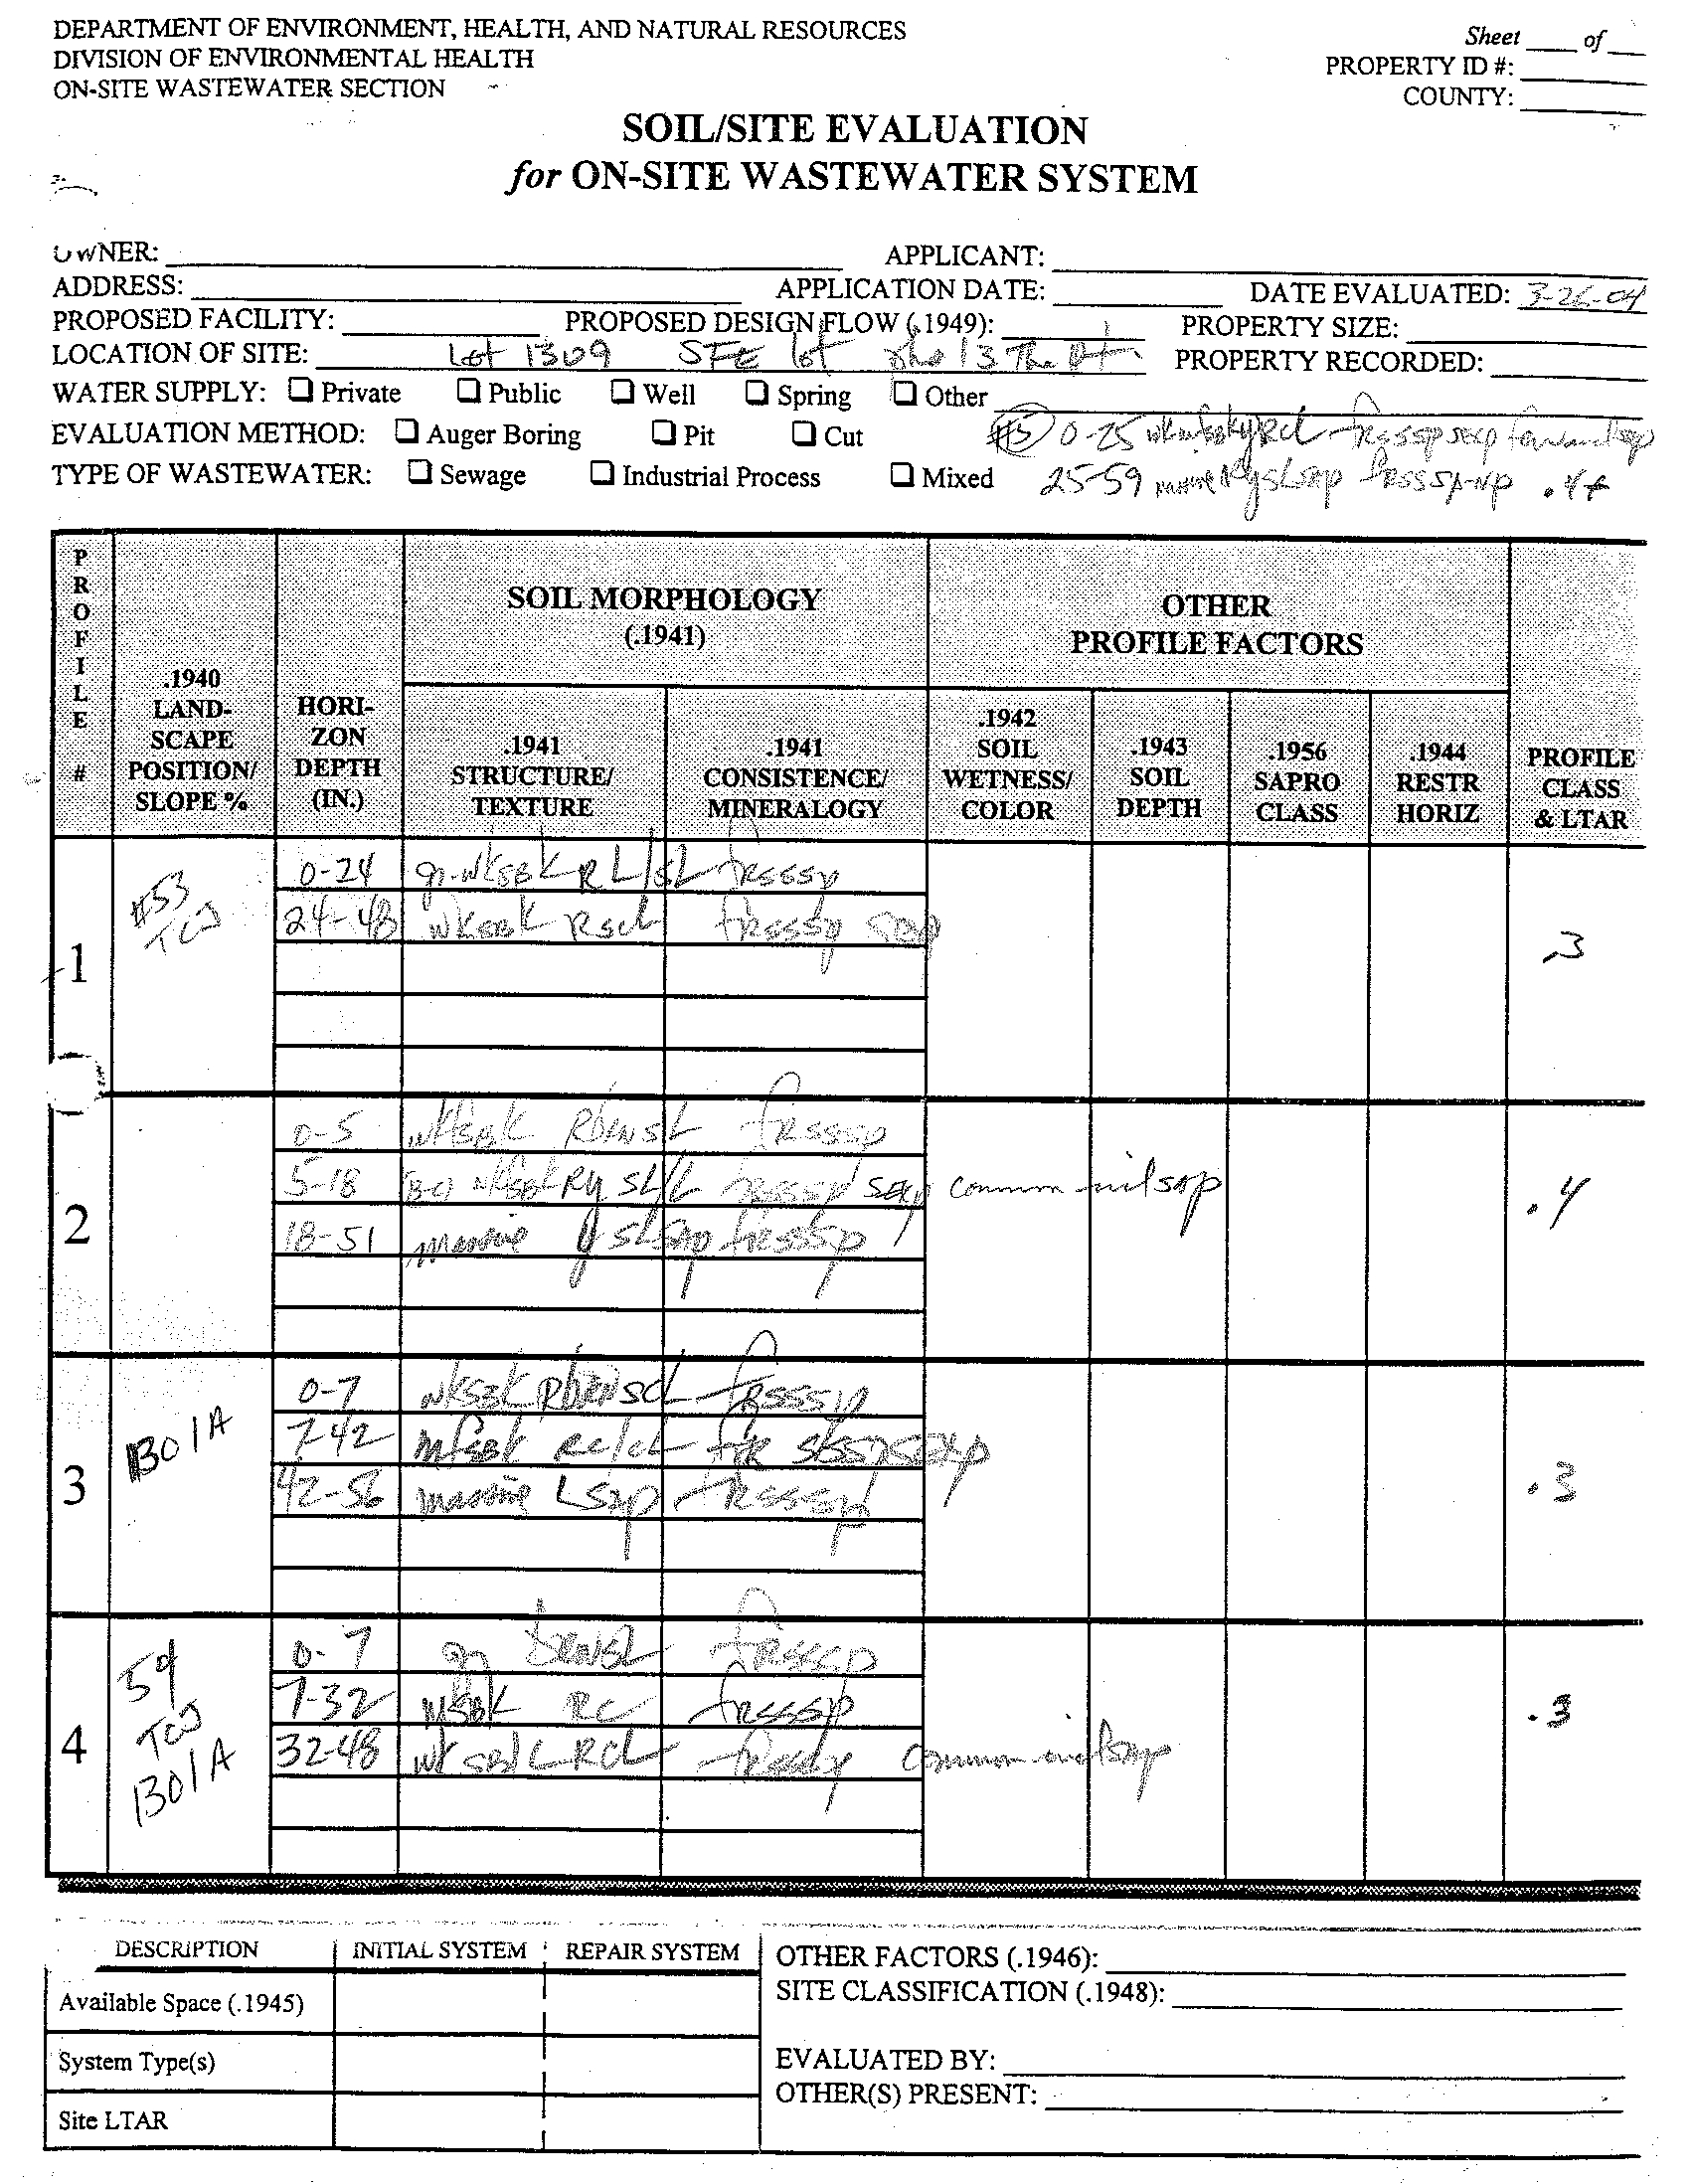 DEPARTMENT OF ENVIRONMENT, HEALTH, AND NATURAL RESOURCES
DIVISION OF ENVIRONMENTAL HEALTH
ON-SITE WASTEWATER SECTION
Sheet ____ of ____
PROPERTY ID #:
COUNTY:
SOIL/SITE EVALUATION
for ON-SITE WASTEWATER SYSTEM
OWNER:
APPLICANT:
ADDRESS:
APPLICATION DATE:
DATE EVALUATED: 3-26-04
PROPOSED FACILITY:
PROPOSED DESIGN FLOW (.1949):
PROPERTY SIZE:
LOCATION OF SITE: Lot 1309 SFE lot 13 The
PROPERTY RECORDED:
WATER SUPPLY: ☐ Private ☐ Public ☐ Well ☐ Spring ☐ Other
EVALUATION METHOD: ☐ Auger Boring ☐ Pit ☐ Cut
#5 0-25
TYPE OF WASTEWATER: ☐ Sewage ☐ Industrial Process ☐ Mixed
25-59 .4
PROFILE #
.1940 LAND-SCAPE POSITION/ SLOPE %
HORI-ZON DEPTH (IN.)
SOIL MORPHOLOGY
(.1941)
.1941 STRUCTURE/ TEXTURE
.1941 CONSISTENCE/ MINERALOGY
OTHER
PROFILE FACTORS
.1942 SOIL WETNESS/ COLOR
.1943 SOIL DEPTH
.1956 SAPRO CLASS
.1944 RESTR HORIZ
PROFILE CLASS & LTAR
1
#53
TCJ
0-24 gr-wksbk RL/SL frsssp
24-48 wksbk Rscl frsssp sexp
.3
2
0-5 wkfsbk Rbrnsl frsssp
5-18 wkfsbk Ry SL/L frsssp sexp common
18-51 massive y sl sap frsssp
.4
3
1301A
0-7 wksbk Rbrnscl frsssp
7-42 mfsbk RC/CL
42-56 massive L sap frsssp
.3
4
59
TCJ
1301A
0-7 gr brnSL frsssp
7-32 msbk RC frsssp
32-48 wk sbk RCL frsssp common
.3
DESCRIPTION
INITIAL SYSTEM
REPAIR SYSTEM
Available Space (.1945)
System Type(s)
Site LTAR
OTHER FACTORS (.1946):
SITE CLASSIFICATION (.1948):
EVALUATED BY:
OTHER(S) PRESENT: